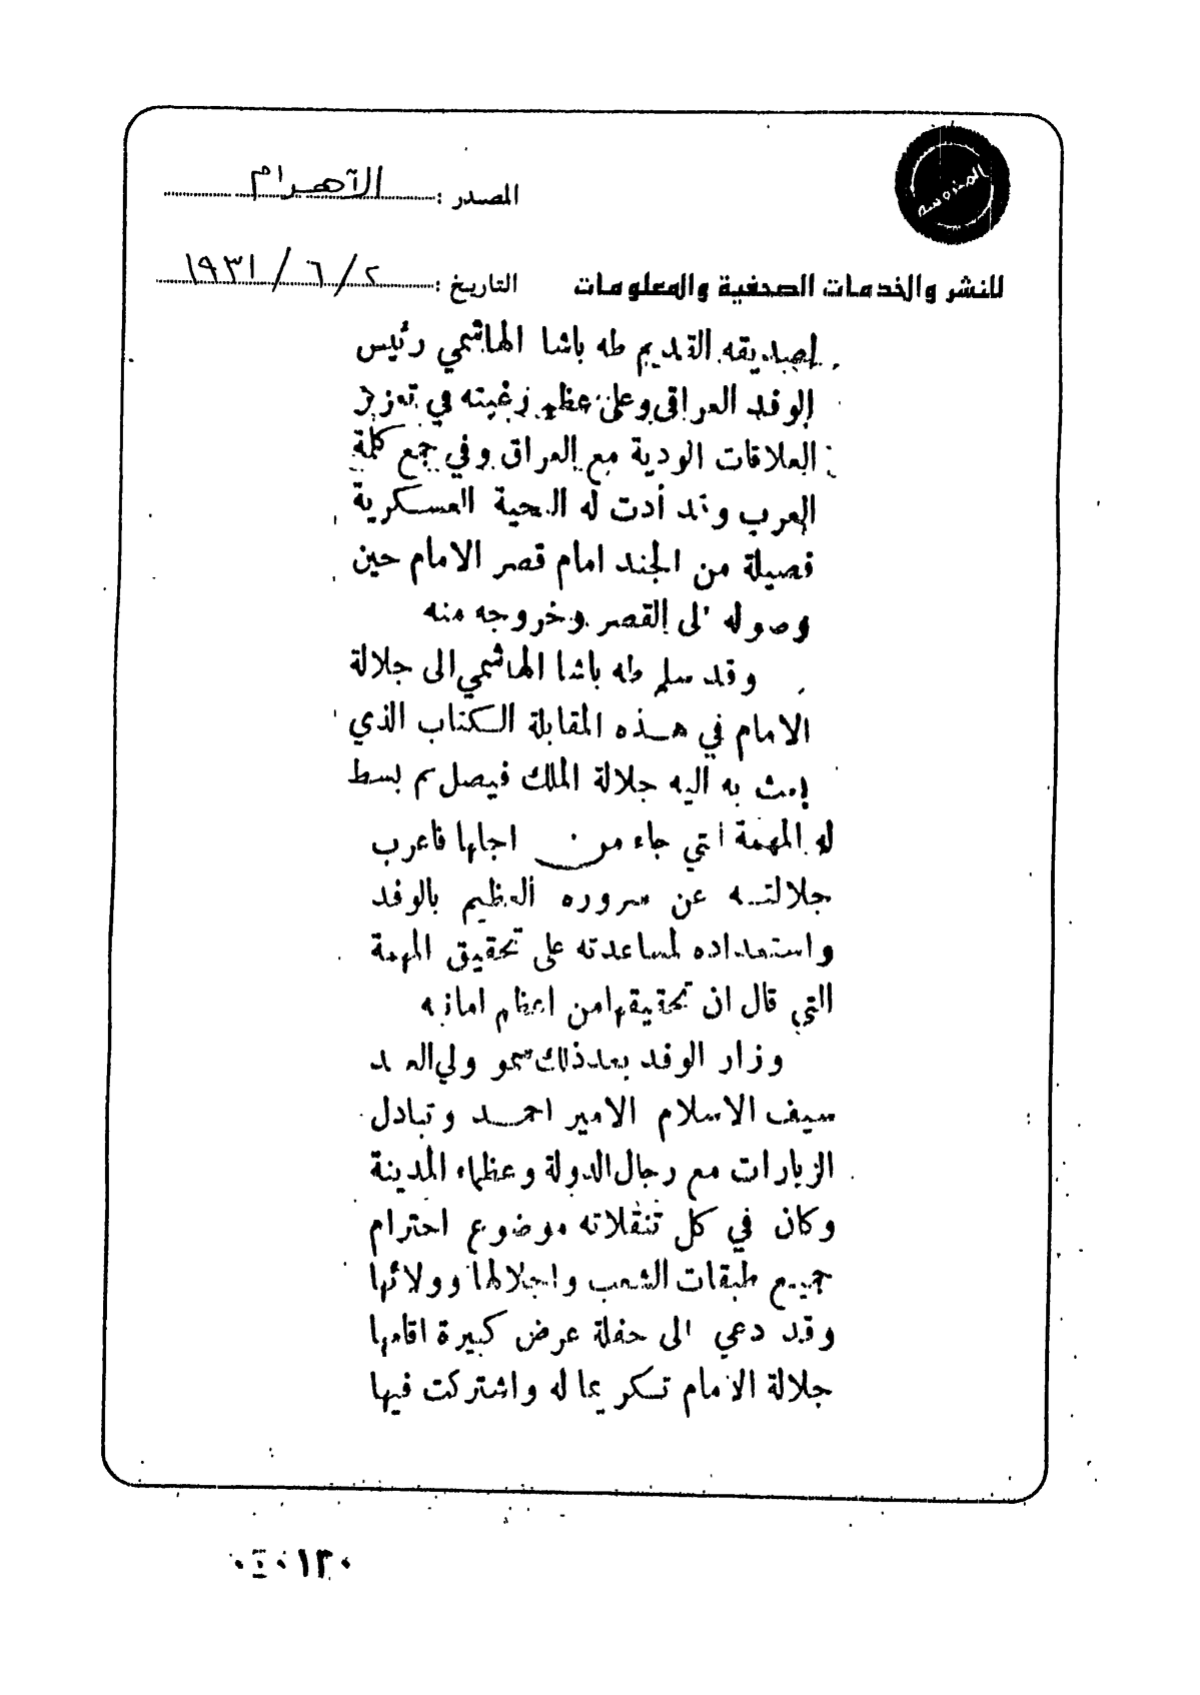 المحروسة
المصدر : الآهرام
للنشر والخدمات الصحفية والمعلومات
التاريخ : ٢ / ٦ / ١٩٣١
لصديقه القديم طه باشا الهاشمي رئيس
الوفد العراقي وعلى عظيم رغبته في تعزيز
العلاقات الودية مع العراق وفي جمع كلمة
العرب وقد أدت له التحية العسكرية
فصيلة من الجند امام قصر الامام حين
وصوله الى القصر وخروجه منه
وقد سلم طه باشا الهاشمي الى جلالة
الامام في هذه المقابلة الكتاب الذي
بعث به اليه جلالة الملك فيصل ثم بسط
له المهمة التي جاء من اجلها فاعرب
جلالته عن سروره العظيم بالوفد
واستعداده لمساعدته على تحقيق المهمة
التي قال ان تحقيقها من اعظم امانيه
وزار الوفد بعد ذلك سمو ولي العهد
سيف الاسلام الامير احمد وتبادل
الزيارات مع رجال الدولة وعظماء المدينة
وكان في كل تنقلاته موضوع احترام
جميع طبقات الشعب واجلالها وولائها
وقد دعي الى حفلة عرض كبيرة اقامها
جلالة الامام تكريما له واشتركت فيها